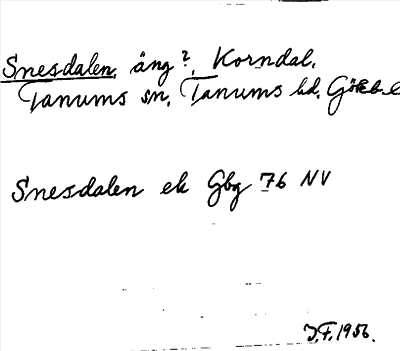 Snesdalen, äng?, Korndal,
Tanums sn, Tanums hd, Göteb. l
Snesdalen ek Gbg 76 NV
J.F. 1956.